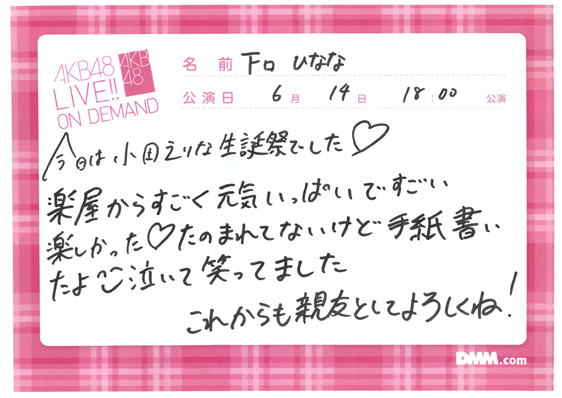 AKB48
LIVE!!
ON DEMAND
AKB
48
名前 下口 ひなな
公演日 6月 14日 18:00 公演
今日は小田えりな生誕祭でした♡
楽屋からすごく元気いっぱいですごい
楽しかった♡たのまれてないけど手紙書い
たよ 泣いて笑ってました
これからも親友としてよろしくね!
DMM.com